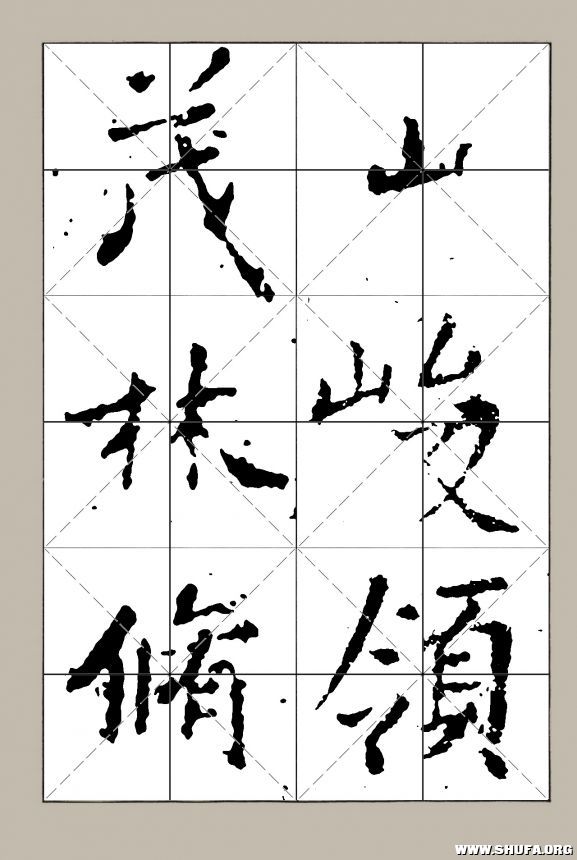 山峻領
茂林脩
WWW.SHUFA.ORG